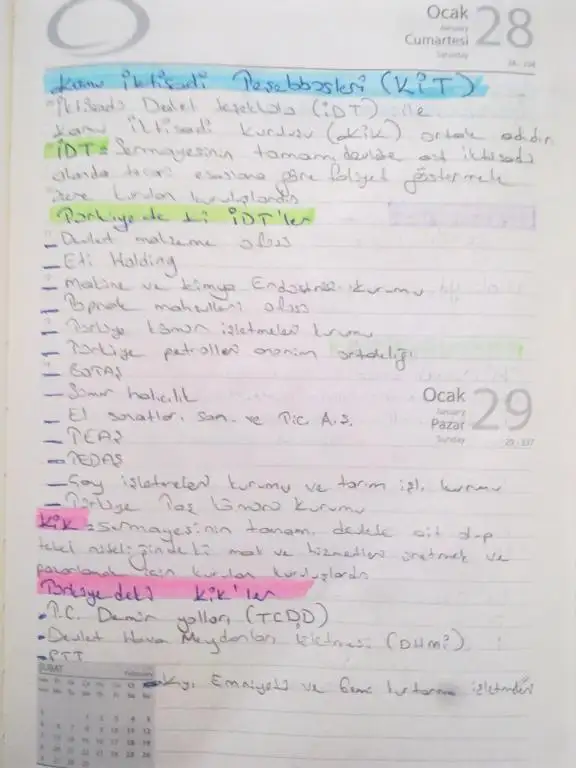 Ocak
January
Cumartesi
Saturday
28
28 - 338
Kamu İktisadi Teşebbüsleri (KİT)
İktisadi Devlet Teşekkülü (İDT) ile
Kamu İktisadi Kuruluşu (KİK) ortak adıdır
İDT = Sermayesinin tamamı devlete ait iktisadi
alanda ticari esaslara göre faliyet göstermek
üzere kurulan kuruluşlardır
Türkiye de ki İDT'ler
- Devlet malzeme ofisi
- Eti Holding
- Makine ve kimya Endüstrisi kurumu
- Toprak mahsulleri ofisi
- Türkiye kömür işletmeleri kurumu
- Türkiye petrolleri anonim ortaklığı
- BOTAŞ
- Sümer halıcılık
Ocak
January
Pazar
Sunday
29
29 - 337
- El sanatları. san. ve Tic. A.Ş.
- TEAŞ
- TEDAŞ
- Çay işletmeleri kurumu ve tarım işl. kurumu
- Türkiye Taş kömürü kurumu
KİK = Sermayesinin tamamı devlete ait olup
tekel niteliğindeki mal ve hizmetleri üretmek ve
pazarlamak için kurulan kuruluşlardır
Türkiye deki KİK'ler
- T.C. Demir yolları (TCDD)
- Devlet Hava Meydanları İşletmesi (DHMİ)
- PTT
- Kıyı Emniyeti ve Gemi kurtarma işletmeleri
ŞUBAT
February